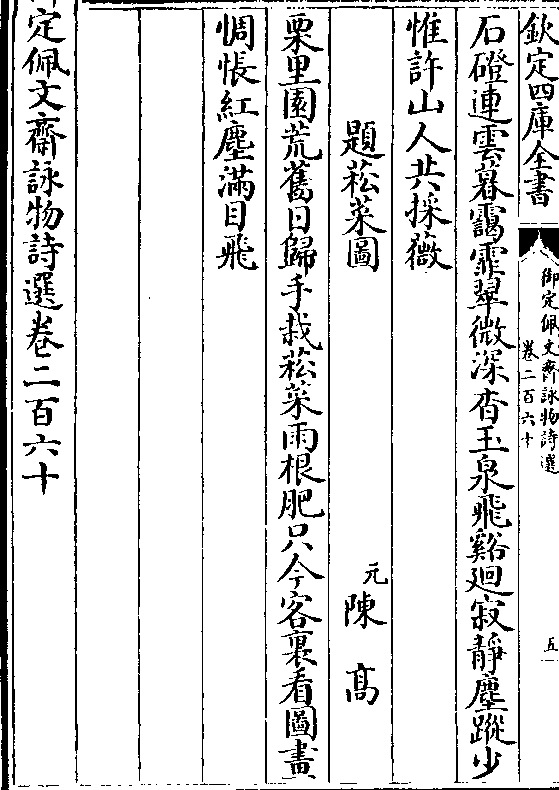 欽定四庫全書
御定佩文齋詠物詩選
卷二百六十
五
石磴連雲暮靄霏翠微深杳玉泉飛谿迴寂靜塵蹤少
惟許山人共採薇
題菘菜圖
元陳高
栗里園荒舊日歸手栽菘菜雨根肥只今客裏看圖畫
惆悵紅塵滿目飛
定佩文齋詠物詩選卷二百六十